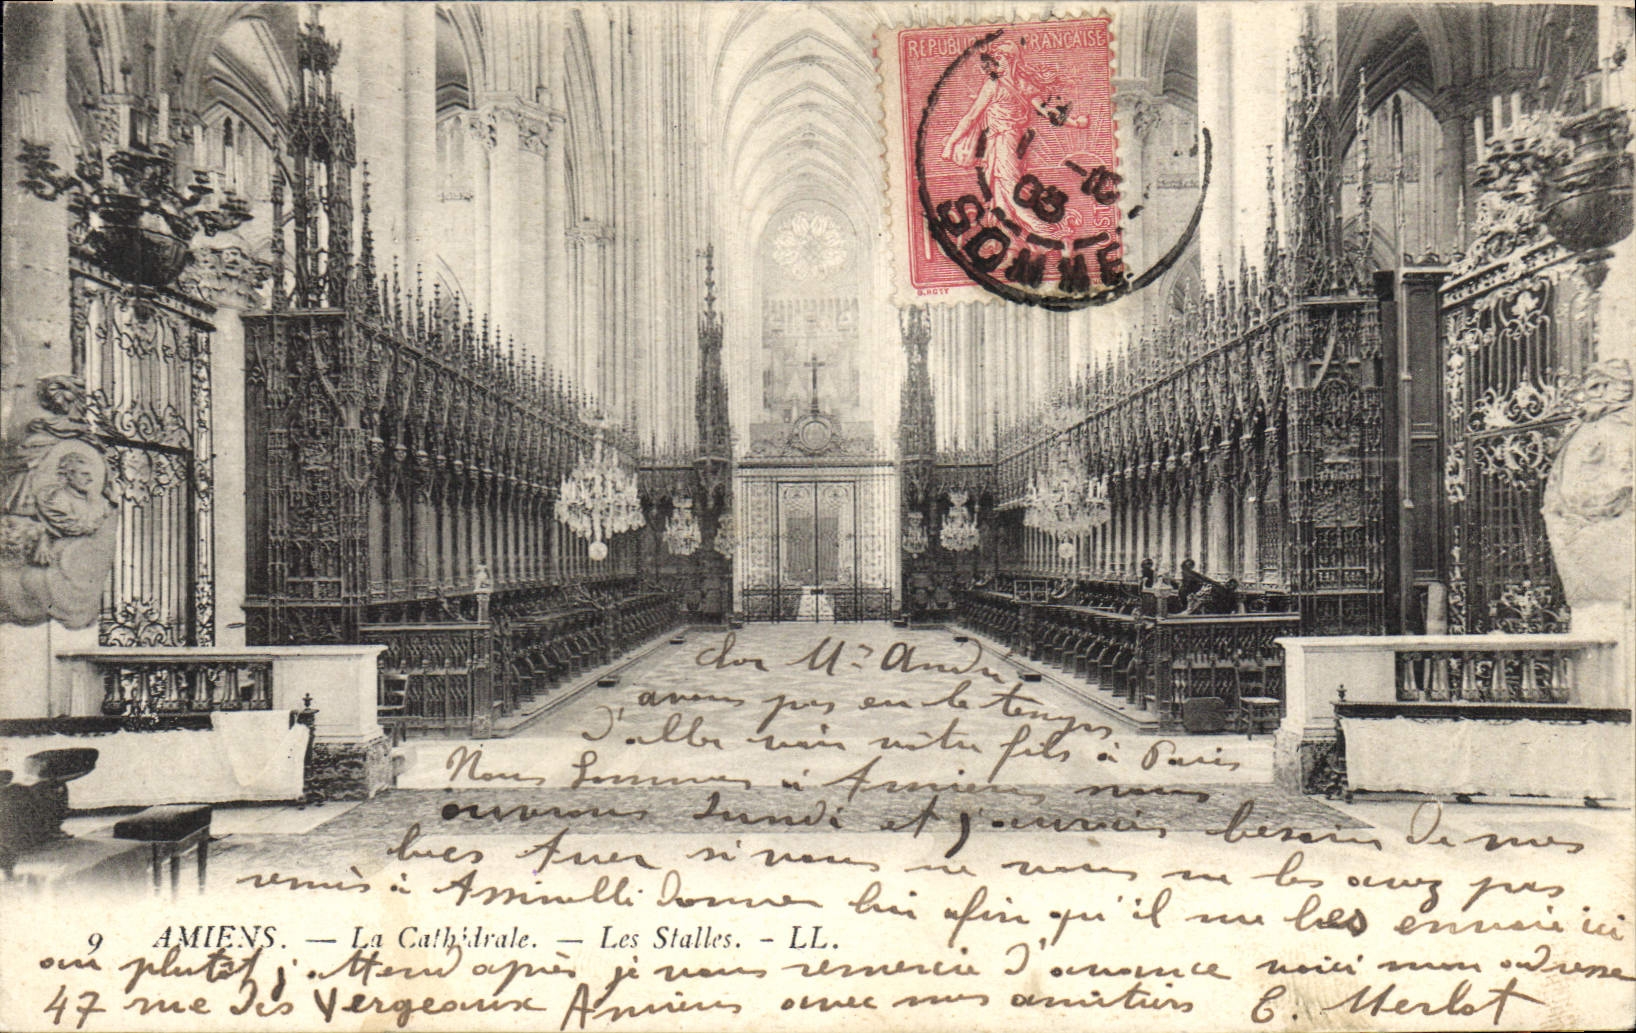 REPUBLIQUE FRANÇAISE
03
SOMME
O. ROTY
cher Mr André
avons pas eu le temps
d'aller voir votre fils à Paris
Nous sommes à Amiens nous
ouvrons Lundi et j'aurais besoin de mes
si vous ne nous ne les avez pas
remis à Assinelli donner lui afin qu'il me les envoie ici
9 AMIENS. — La Cathédrale. — Les Stalles. - LL.
ou plutôt j'attend après je vous remercie d'avance voici mon adresse
47 rue des Vergeaux Amiens avec mes amitiers E. Merlot